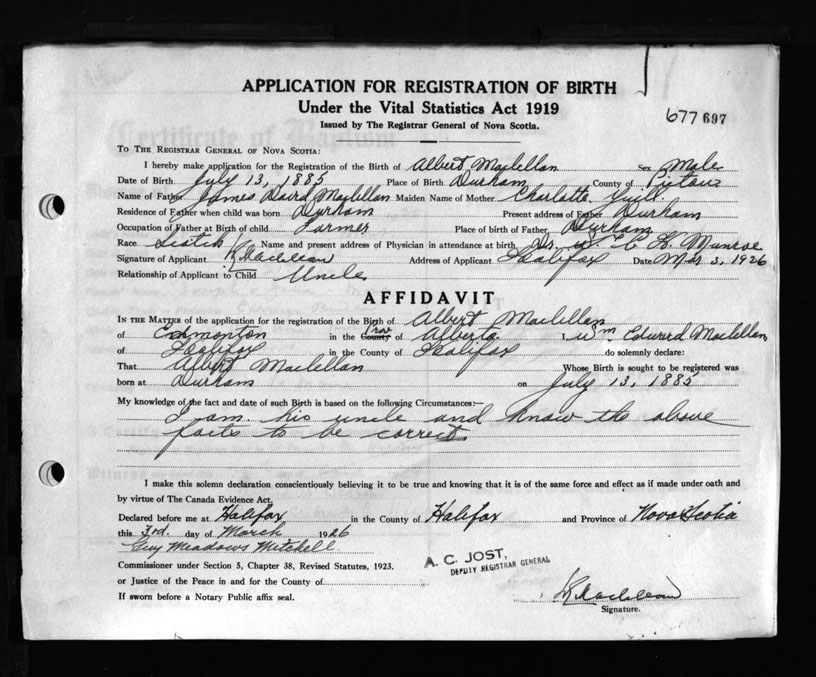 APPLICATION FOR REGISTRATION OF BIRTH
Under the Vital Statistics Act 1919
Issued by The Registrar General of Nova Scotia.
677697
TO THE REGISTRAR GENERAL OF NOVA SCOTIA:
I hereby make application for the Registration of the Birth of Albert Maclellan Sex Male
Date of Birth July 13, 1885 Place of Birth Durham County of Pictou
Name of Father James David Maclellan Maiden Name of Mother Charlotte
Residence of Father when child was born Durham Present address of Father Durham
Occupation of Father at Birth of child Farmer Place of birth of Father Durham
Race Scotch Name and present address of Physician in attendance at birth Dr. Munroe
Signature of Applicant Address of Applicant Halifax Date Mar 3, 1926
Relationship of Applicant to Child Uncle
AFFIDAVIT
IN THE MATTER of the application for the registration of the Birth of Albert Maclellan
of Edmonton in the County Prov of Alberta I, Wm Edward Maclellan
of Halifax in the County of Halifax do solemnly declare:
That Albert Maclellan Whose Birth is sought to be registered was
born at Durham on July 13, 1885
My knowledge of the fact and date of such Birth is based on the following Circumstances:—
I am his uncle and know the above
facts to be correct.
I make this solemn declaration conscientiously believing it to be true and knowing that it is of the same force and effect as if made under oath and
by virtue of The Canada Evidence Act,
Declared before me at Halifax in the County of Halifax and Province of Nova Scotia
this 3rd. day of March 1926
Guy Meadows Mitchell
Commissioner under Section 5, Chapter 38, Revised Statutes, 1923.
or Justice of the Peace in and for the County of
If sworn before a Notary Public affix seal.
A. C. JOST,
DEPUTY REGISTRAR GENERAL
Signature.